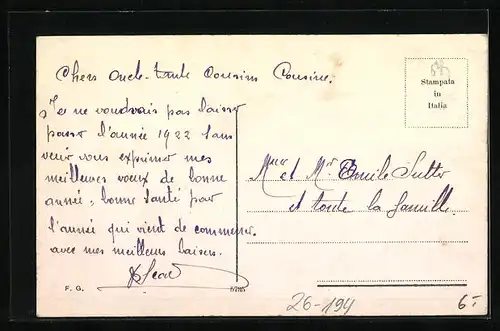 Chers Oncle-tante Cousins Cousine.
Je ne voudrais pas laisser
passer l'année 1922 sans
venir vous exprimer mes
meilleures voeux de bonne
année, bonne santé par
l'année qui vient de commencer
avec mes meilleurs baisers.
F. G.
Stampata
in
Italia
Mme et Mr Emile Sutter
et toute la famille.
26-194
6.-